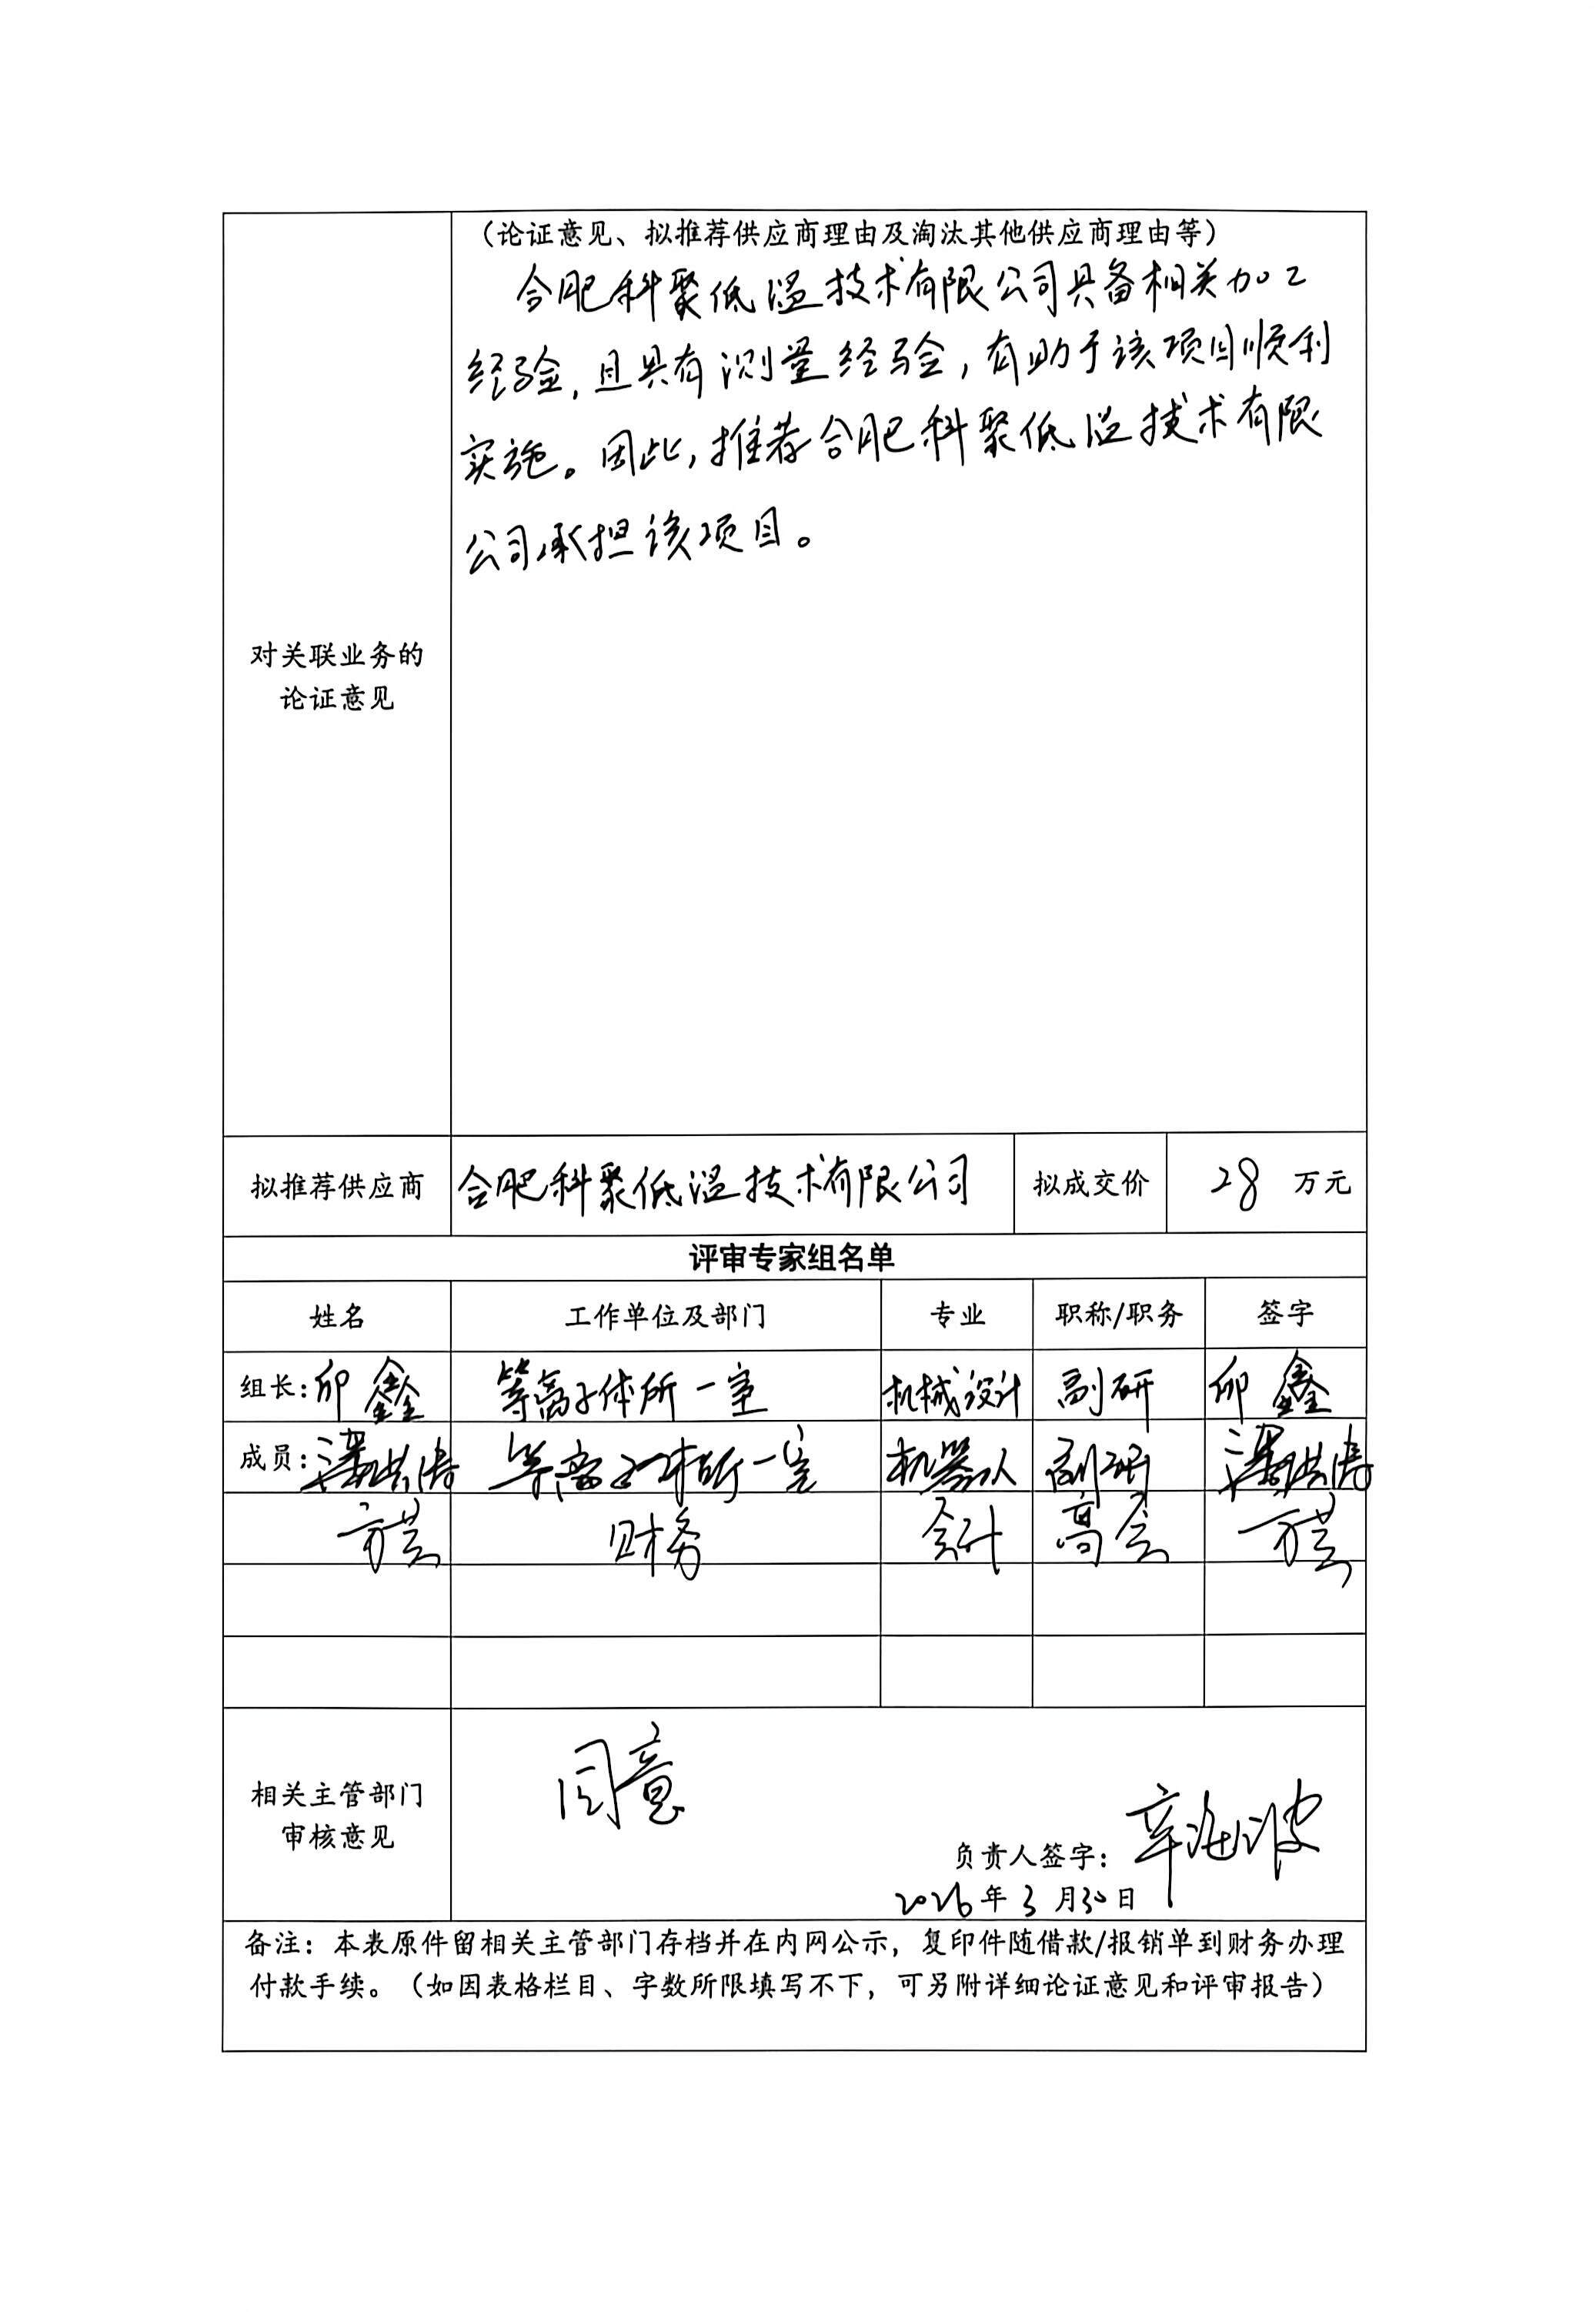 （论证意见、拟推荐供应商理由及淘汰其他供应商理由等）
合肥科聚低温技术有限公司具备相关加工
经验，且具有测量经验，有助于该项目顺利
实施。因此，推荐合肥科聚低温技术有限
公司承担该项目。
对关联业务的
论证意见
拟推荐供应商 合肥科聚低温技术有限公司 拟成交价 28 万元
评审专家组名单
姓名 工作单位及部门 专业 职称/职务 签字
组长: 印鑫 等离子体所一室 机械设计 副研 印鑫
成员: 等离子体所一室 机器人 副研
财务 会计 高会
同意
相关主管部门
审核意见
负责人签字: 辛海波
2026年3月30日
备注：本表原件留相关主管部门存档并在内网公示，复印件随借款/报销单到财务办理
付款手续。（如因表格栏目、字数所限填写不下，可另附详细论证意见和评审报告）